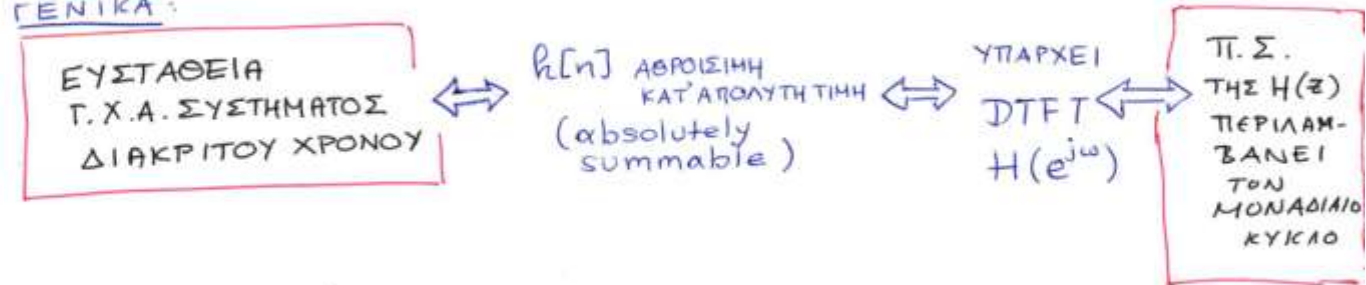 ΓΕΝΙΚΑ:
ΕΥΣΤΑΘΕΙΑ
Γ.Χ.Α. ΣΥΣΤΗΜΑΤΟΣ
ΔΙΑΚΡΙΤΟΥ ΧΡΟΝΟΥ
h[n] ΑΘΡΟΙΣΙΜΗ
ΚΑΤ'ΑΠΟΛΥΤΗ ΤΙΜΗ
(absolutely
summable)
ΥΠΑΡΧΕΙ
DTFT
H(e^{jω})
Π.Σ.
ΤΗΣ H(z)
ΠΕΡΙΛΑΜ-
ΒΑΝΕΙ
ΤΟΝ
ΜΟΝΑΔΙΑΙΟ
ΚΥΚΛΟ